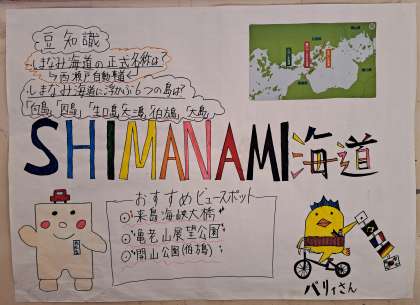 豆知識
しまなみ海道の正式名称は?
↳西瀬戸自動車道
しまなみ海道に浮かぶ6つの島は?
「向島」「因島」「生口島」「大三島」「伯方島」「大島」
SHIMANAMI海道
おすすめビュースポット
来島海峡大橋
亀老山展望公園
開山公園(伯方島)
バリィさん